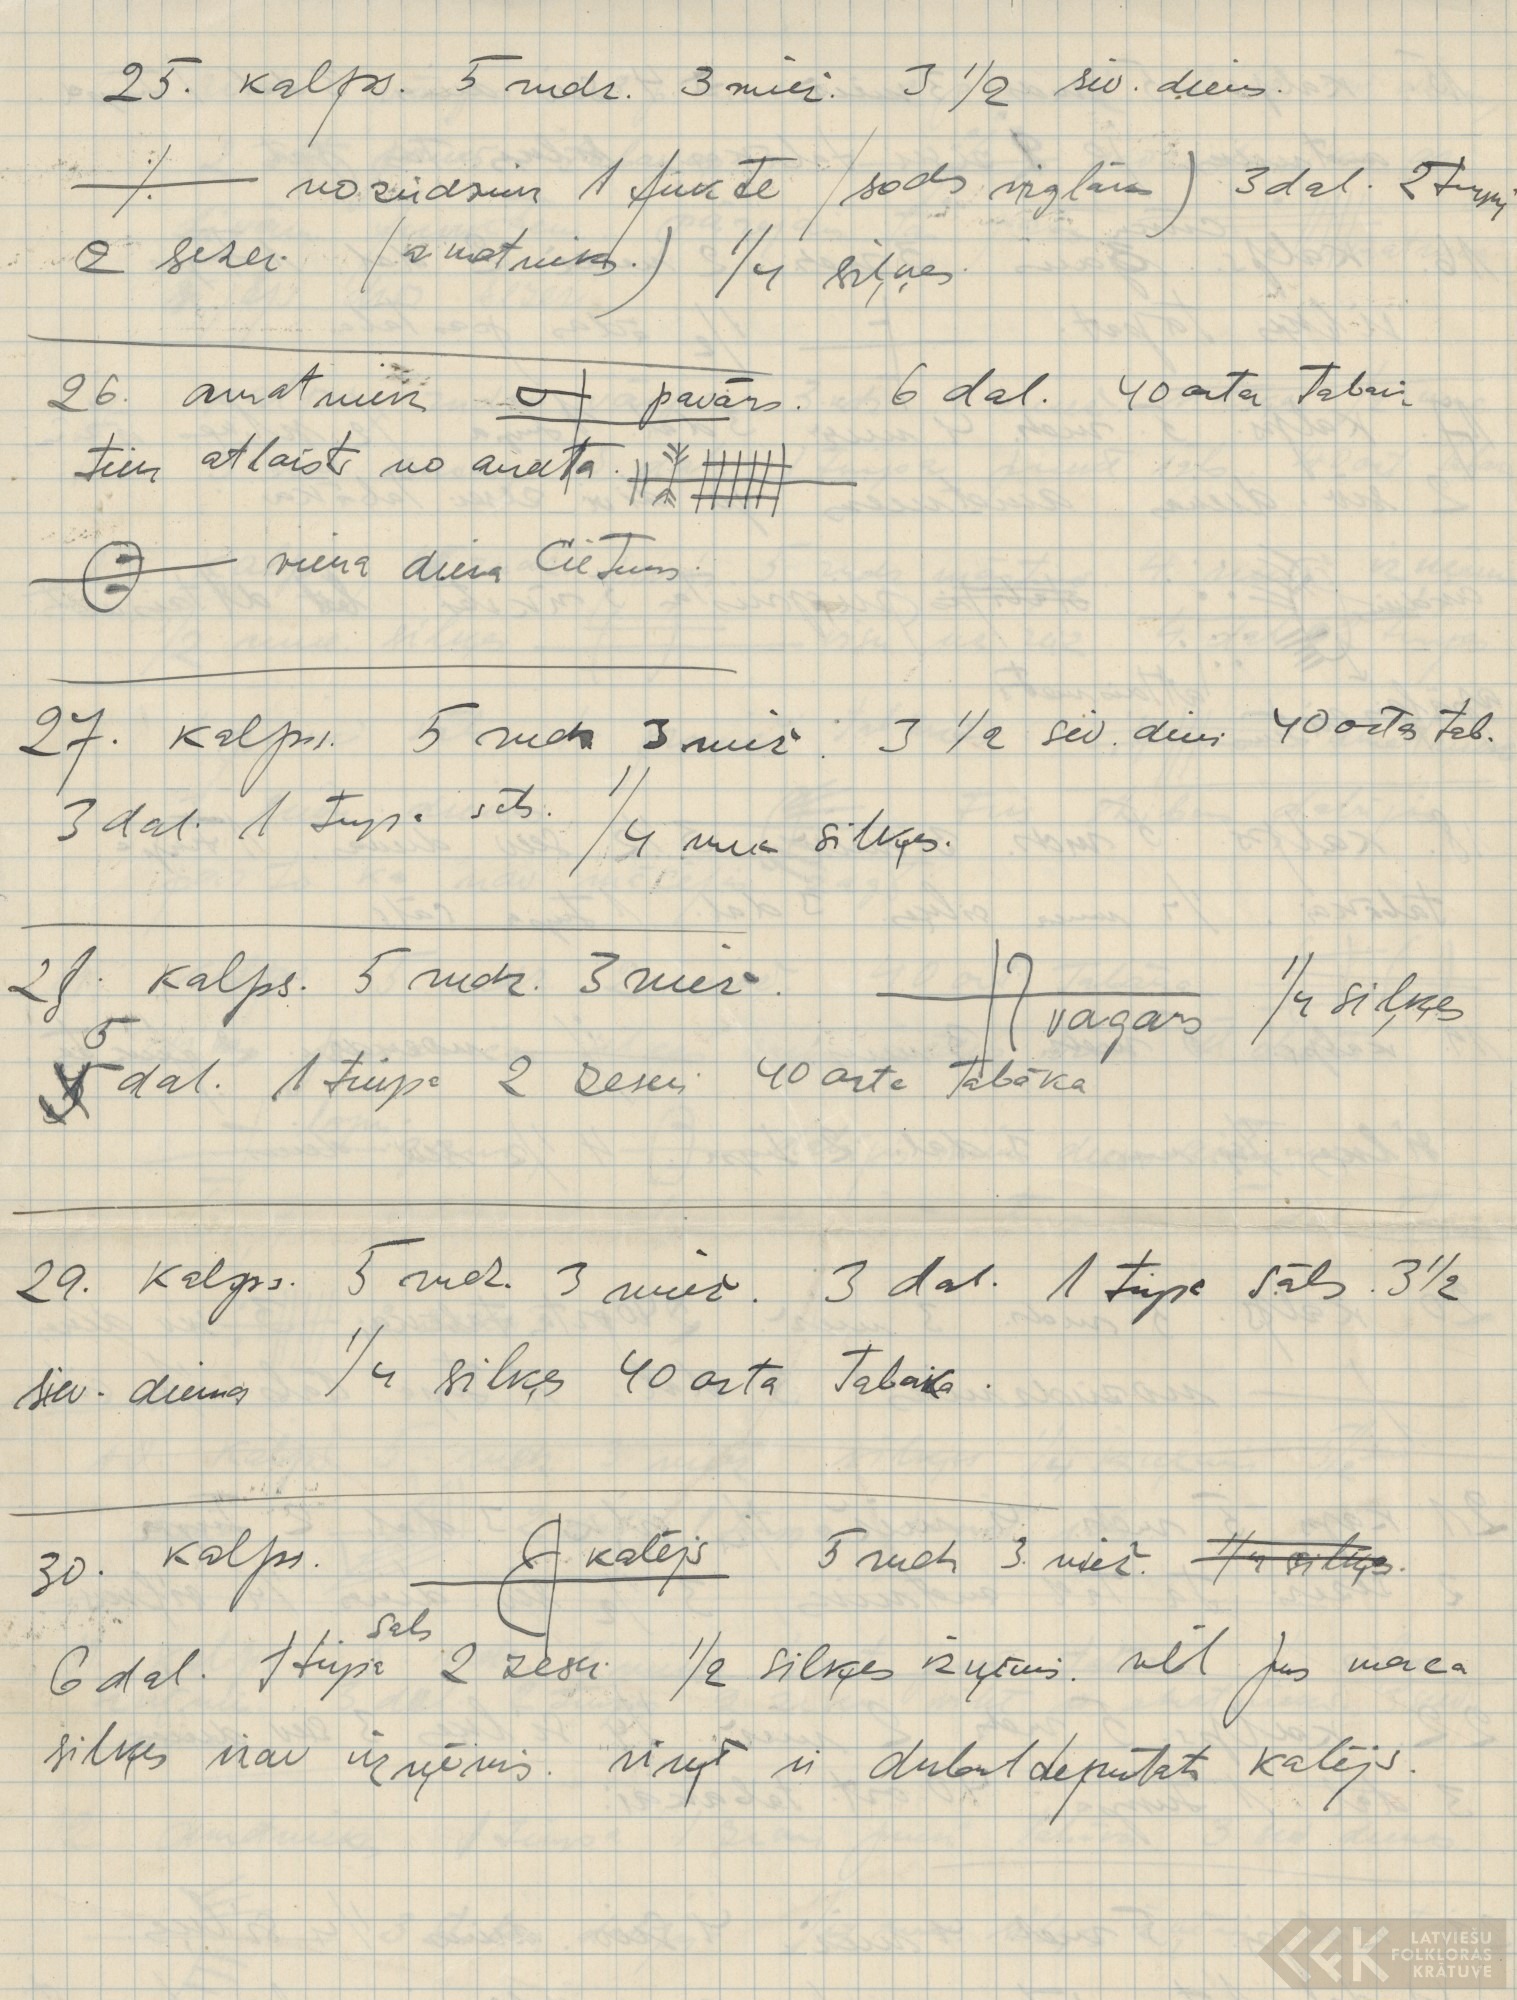 25. kalps. 5 rudz. 3 miež. 3 1/2 siev. diens.
nozudzin 1 (sods vieglāks) 3 dal. 2
2 (amatnieks.) 1/4 siļķes.
26. amatniek pavārs. 6 dal. 40 orta
tiek atlaists no amata.
viena diena Cietums.
27. kalps. 5 rudz 3 miež. 3 1/2 siev. dien 40 orta tab.
3 dal. 1 tupe sāls. 1/4 muc silķes.
28. kalps. 5 rudz. 3 miež. vagars 1/4 siļķes
5
dal. 1 tupe 2 40 orta tabāka
29. kalps. 5 rudz. 3 miež. 3 dal. 1 tupe sāls. 3 1/2
siev. diena 1/4 silķes 40 orta tabaka.
30. kalps. kalējs 5 rudz 3 miež. 1/4 silķes.
sals
6 dal. 1 tupe 2 1/2 silķes izņēmis. vēl
silķes nav izņēmis. viņš ir dubultdeputāts kalējs.
LATVIEŠU
FOLKLORAS
KRĀTUVE